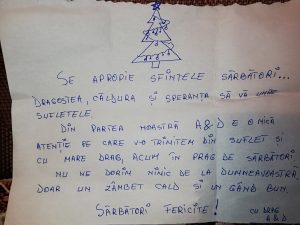 SE APROPIE SFINTELE SĂRBĂTORI...
DRAGOSTEA, CĂLDURA ȘI SPERANȚA SĂ VĂ UMPLE
SUFLETELE.
DIN PARTEA NOASTRĂ A&D E O MICĂ
ATENȚIE PE CARE V-O TRIMITEM DIN SUFLET ȘI
CU MARE DRAG, ACUM ÎN PRAG DE SĂRBĂTORI.
NU NE DORIM NIMIC DE LA DUMNEAVOASTRĂ
DOAR UN ZÂMBET CALD ȘI UN GÂND BUN.
SĂRBĂTORI FERICITE!
CU DRAG
A&D